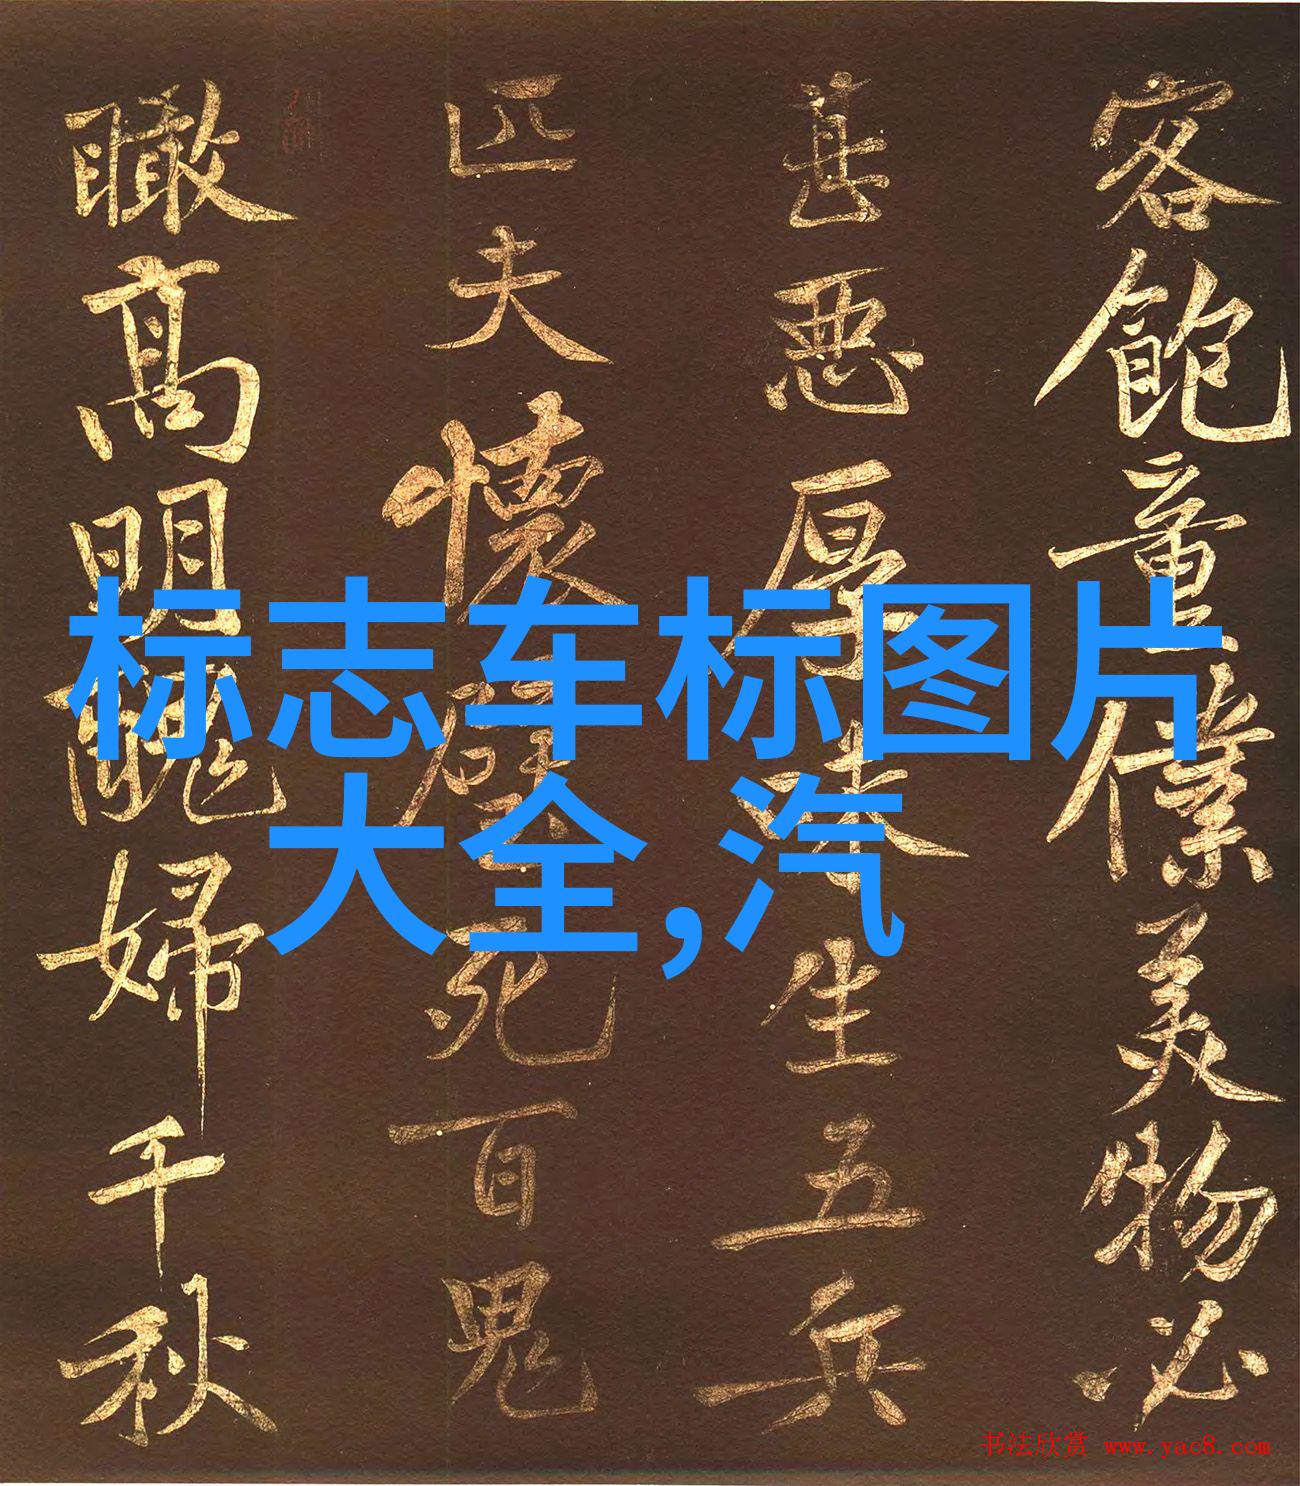 客飽童僕美物必
甚惡厚味生五兵
匹夫懷璧死百鬼
瞰高明醜婦千秋
标志车标图片
大全,汽
书法欣赏 www.yac8.com